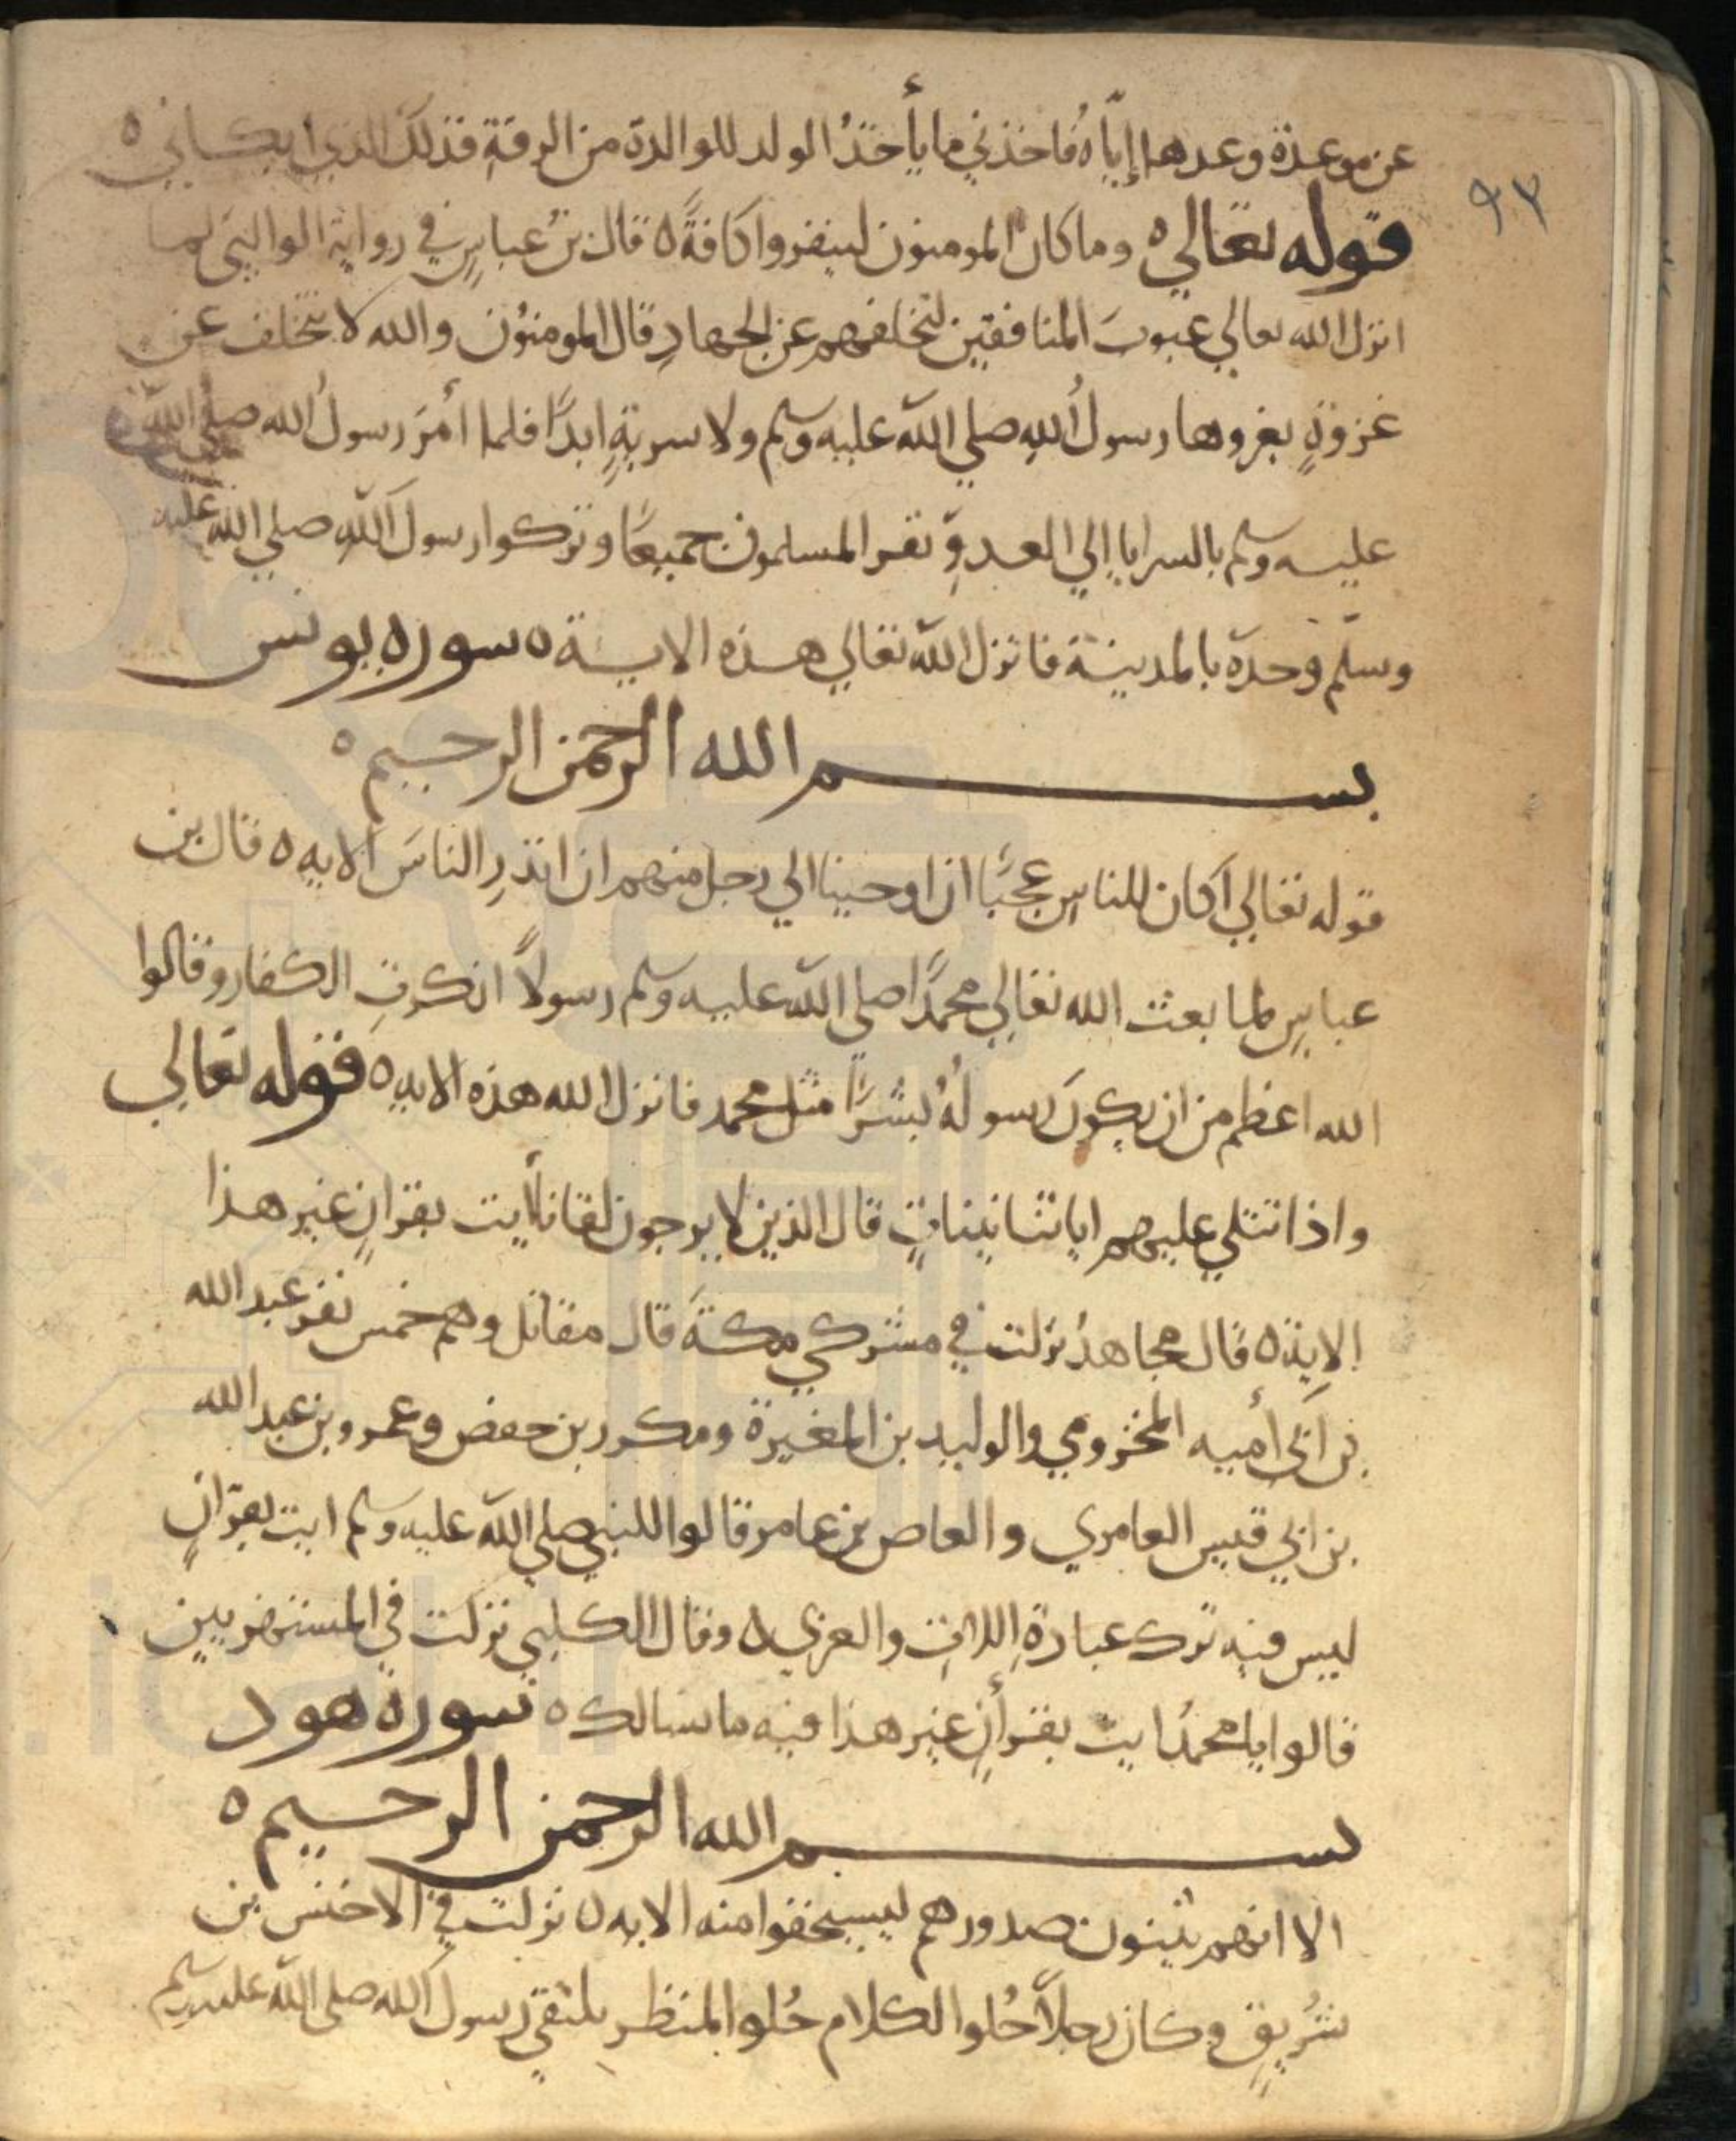 ٩٣
عن موعدة وعدها إيّاهُ فاخذني ما يأخذُ الولد للوالدة من الرقة فذلك الذي ابكاني ٥
قوله تعالي ٥ وما كان المومنون لينفروا كافةً ٥ قال بن عباسٍ في رواية الوالبي لما
انزل الله تعالي عيوبَ المنافقين لتخلفهم عن الجهادِ قال المومنوُن والله لا نتخلف عن
غزوةٍ يغزوها رسول اُللهِ صلي الله عليه وسلم ولا سريةٍ ابدًا فلما أمَرَ رسولُ الله صلي الله
عليه وسلم بالسرايا إلي العدوِّ نفر المسلمون جميعًا وتركوا رسول اللهِ صلي الله عليه
وسلّم وحدَه بالمدينة فانزل الله تعالي هذه الاية ٥ سوره يونس
بسم الله الرحمن الرحيم ٥
قوله تعالي اكان للناسِ عجبًا ان اوحينا الي رجل منهم ان انذرِ الناسَ الايه ٥ قال بن
عباسٍ لما بعث الله تعالي محمدًا صلي الله عليه وسلم رسولاً انكرتِ الكفار وقالوا
الله اعظم من ان يكونَ رسولهُ بشرًا مثل محمد فانزل الله هذه الايه ٥ قوله تعالي
واذا تتلي عليهم اياتنا بيناتٍ قال الذين لا يرجون لقانا أيت بقرانٍ غير هذا
الاية ٥ قال مجاهدُ نزلت في مشركي مكةَ قال مقاتل وهم خمس نفر عبد الله
بن ابي أميه المخزومي والوليد بن المغيرة ومكرر بن حفص وعمرو بن عبد الله
بن ابي قيس العامري والعاص بن عامر قالوا للنبي صلي الله عليه وسلم ايت بقرانٍ
ليس فيه ترك عبادةِ اللاتِ والعزي ٥ وقال الكلبي نزلت في المستهزيين
قالوا يا محمدُ ايت بقرأنٍ غير هذا فيه ما نسالك ٥ سورة هود
بسم الله الرحمن الرحيم ٥
الا انهم يثنون صدورهم ليستخفوا منه الايه ٥ نزلت في الاخنس بن
شُريقٍ وكان رجلاً حُلوا الكلام حُلوا المنظر يلتقي رسول الله صلي الله عليه وسلم